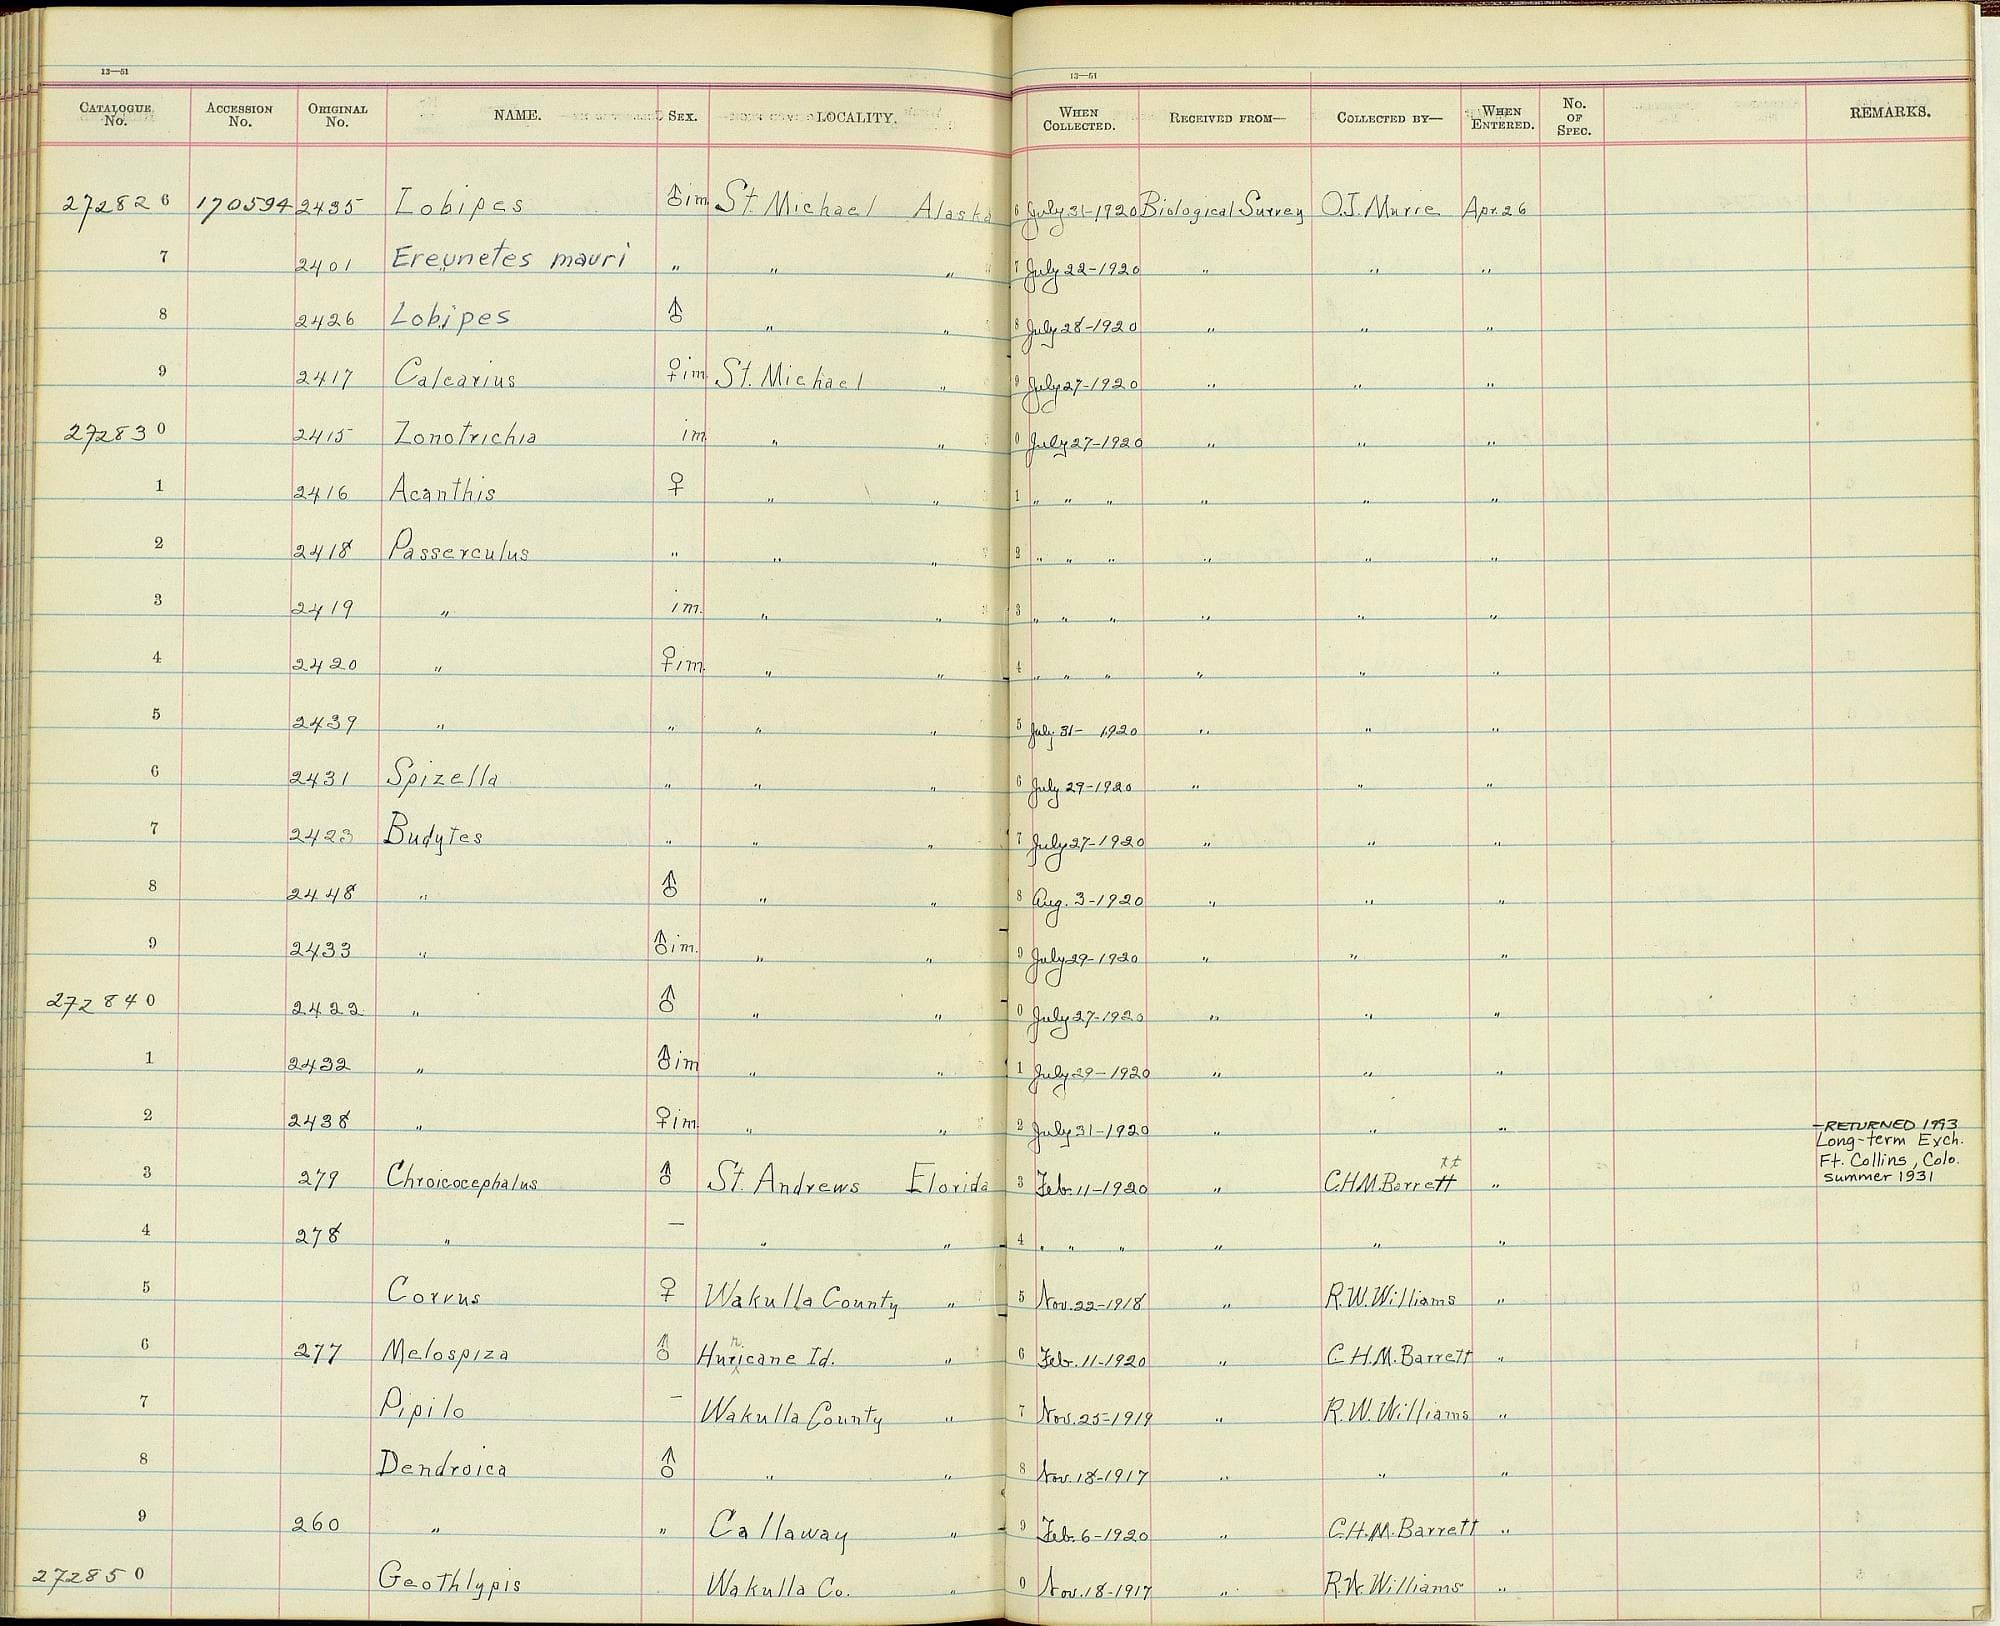 13—51 13—51
CATALOGUE No. ACCESSION No. ORIGINAL No. NAME. SEX. LOCALITY. WHEN COLLECTED. RECEIVED FROM— COLLECTED BY— WHEN ENTERED. No. OF SPEC. REMARKS.
272826 170594 2435 Lobipes ♂ im St. Michael Alaska 6 July 31-1920 Biological Survey O.J. Murie Apr. 26
7 2401 Ereunetes mauri " " " 7 July 22-1920 " " "
8 2426 Lobipes ♂ " " 8 July 28-1920 " " "
9 2417 Calcarius ♀ im St. Michael " 9 July 27-1920 " " "
272830 2415 Zonotrichia im " " 0 July 27-1920 " " "
1 2416 Acanthis ♀ " " 1 " " " " " "
2 2418 Passerculus " " " 2 " " " " " "
3 2419 " im. " " 3 " " " " " "
4 2420 " ♀ im. " " 4 " " " " " "
5 2439 " " " " 5 July 31- 1920 " " "
6 2431 Spizella " " " 6 July 29-1920 " " "
7 2423 Budytes " " " 7 July 27-1920 " " "
8 2448 " ♂ " " 8 Aug. 3-1920 " " "
9 2433 " ♂ im. " " 9 July 29-1920 " " "
272840 2422 " ♂ " " 0 July 27-1920 " " "
1 2432 " ♂ im " " 1 July 29-1920 " " "
2 2438 " ♀ im " " 2 July 31-1920 " " "
RETURNED 1993
Long-term Exch.
Ft. Collins, Colo.
summer 1931
tt
3 279 Chroicocephalus ♂ St. Andrews Florida 3 Feb. 11-1920 " C.H.M. Barrett "
4 278 " — " " 4 " " " " " "
5 Corvus ♀ Wakulla County " 5 Nov. 22-1918 " R.W. Williams "
6 277 Melospiza ♂ Hurricane Id. " 6 Feb. 11-1920 " C.H.M. Barrett "
7 Pipilo — Wakulla County " 7 Nov. 25-1919 " R.W. Williams "
8 Dendroica ♂ " " 8 Nov. 18-1917 " " "
9 260 " " Callaway " 9 Feb. 6-1920 " C.H.M. Barrett "
272850 Geothlypis Wakulla Co. " 0 Nov. 18-1917 " R.W. Williams "